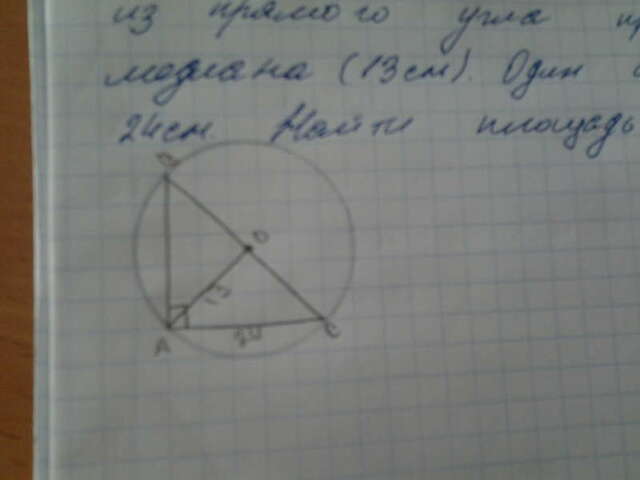 из прямого угла пр
медиана (13см). Один
24см Найти площадь
B
O
13
A 24 C